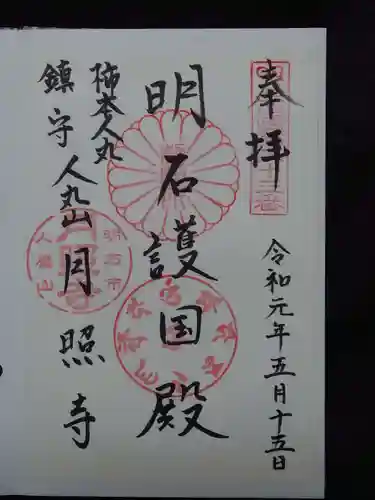 奉拝
令和元年五月十五日
明石護国殿
柿本人丸
鎮守
人丸山月照寺
明石市
人丸山